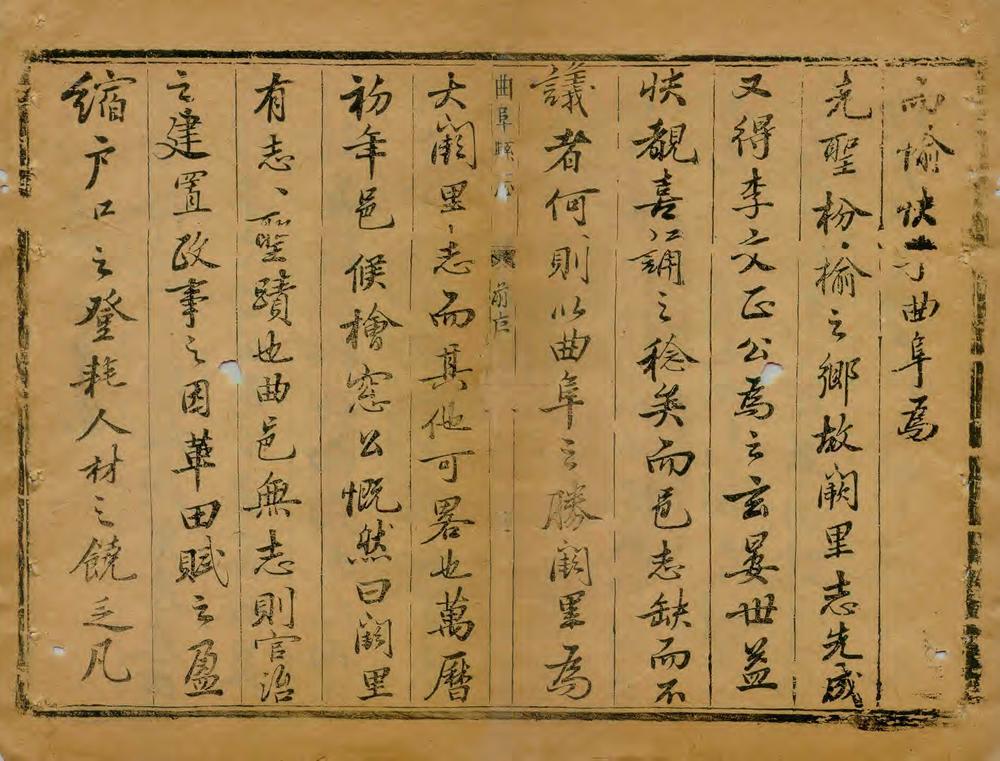 而愉快于曲阜焉
先聖枌榆之鄉故闕里志先成
又得李文正公為之玄晏世益
快覩喜誦之稔矣而邑志缺而不
議者何則以曲阜之勝闕里為
曲阜縣志 前序
大闕里志而其他可畧也萬曆
初年邑侯檜窓公慨然曰闕里
有志、聖蹟也曲邑無志則官治
之建置政事之因革田賦之盈
縮户口之登耗人材之饒乏凡